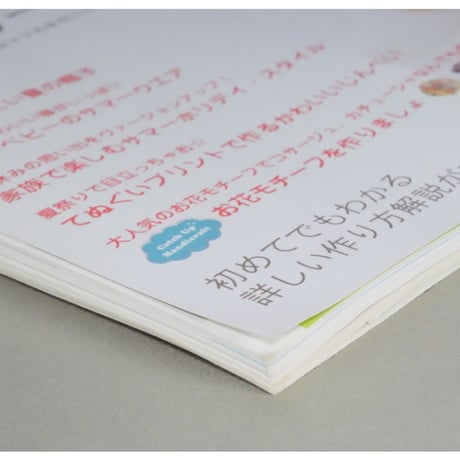 夏の帽子
ベビーのサマーウエア
休みの思い出をヴァージョンアップ!
家族で楽しむサマーホリデイ・スタイル
夏祭りで目立っちゃお☆
てぬぐいプリントで作るかわいいじんべい
大人気のお花モチーフでコサージュ、カチューシャ
お花モチーフを作りましょ
Catch Up
Handicraft
初めてでもわかる
詳しい作り方解説が